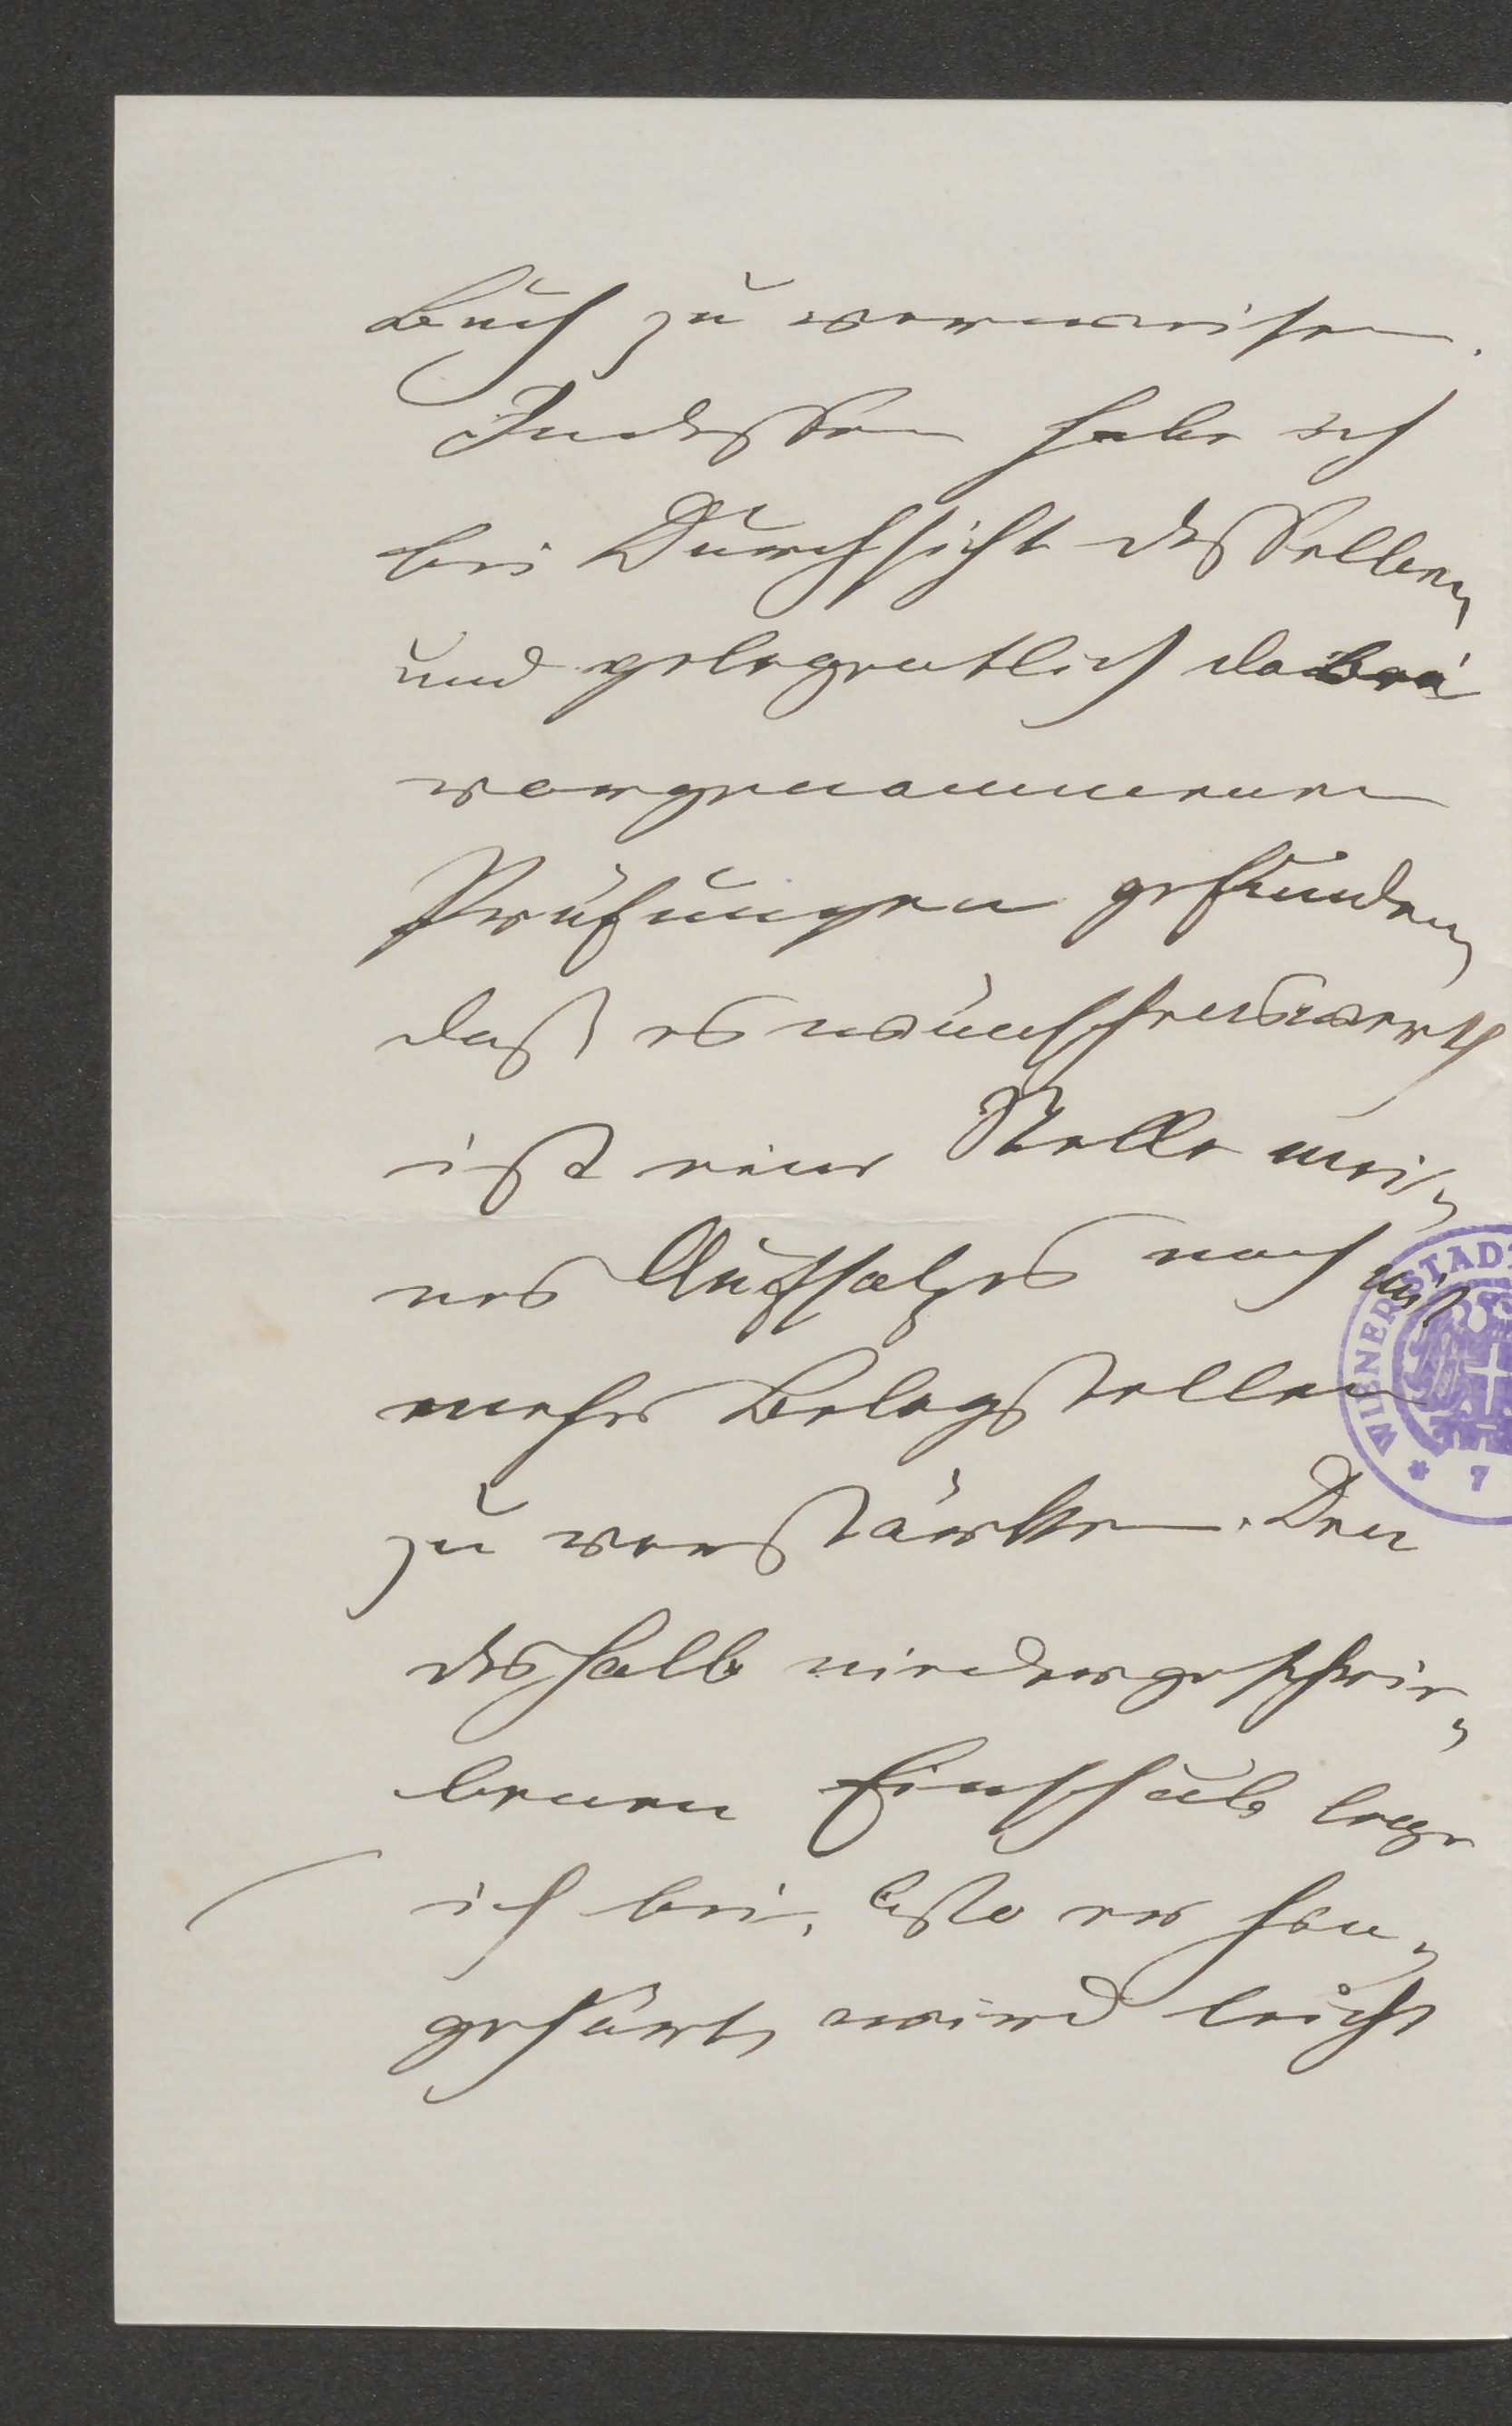 Buch zu verweisen.
Indessen habe ich
bei Durchsicht desselben
und gelegentlich dabei
vorgenommenen
Prüfungen gefunden,
daß es wünschenswerth
ist eine Stelle mei-
nes Aufsatzes noch mit
mehr Belegstellen
zu verstärken. Den
deshalb niedergeschrie-
benen Einschub lege
ich bei. Wo er hin-
gehört, wird leicht
WIENER STAD
* 7